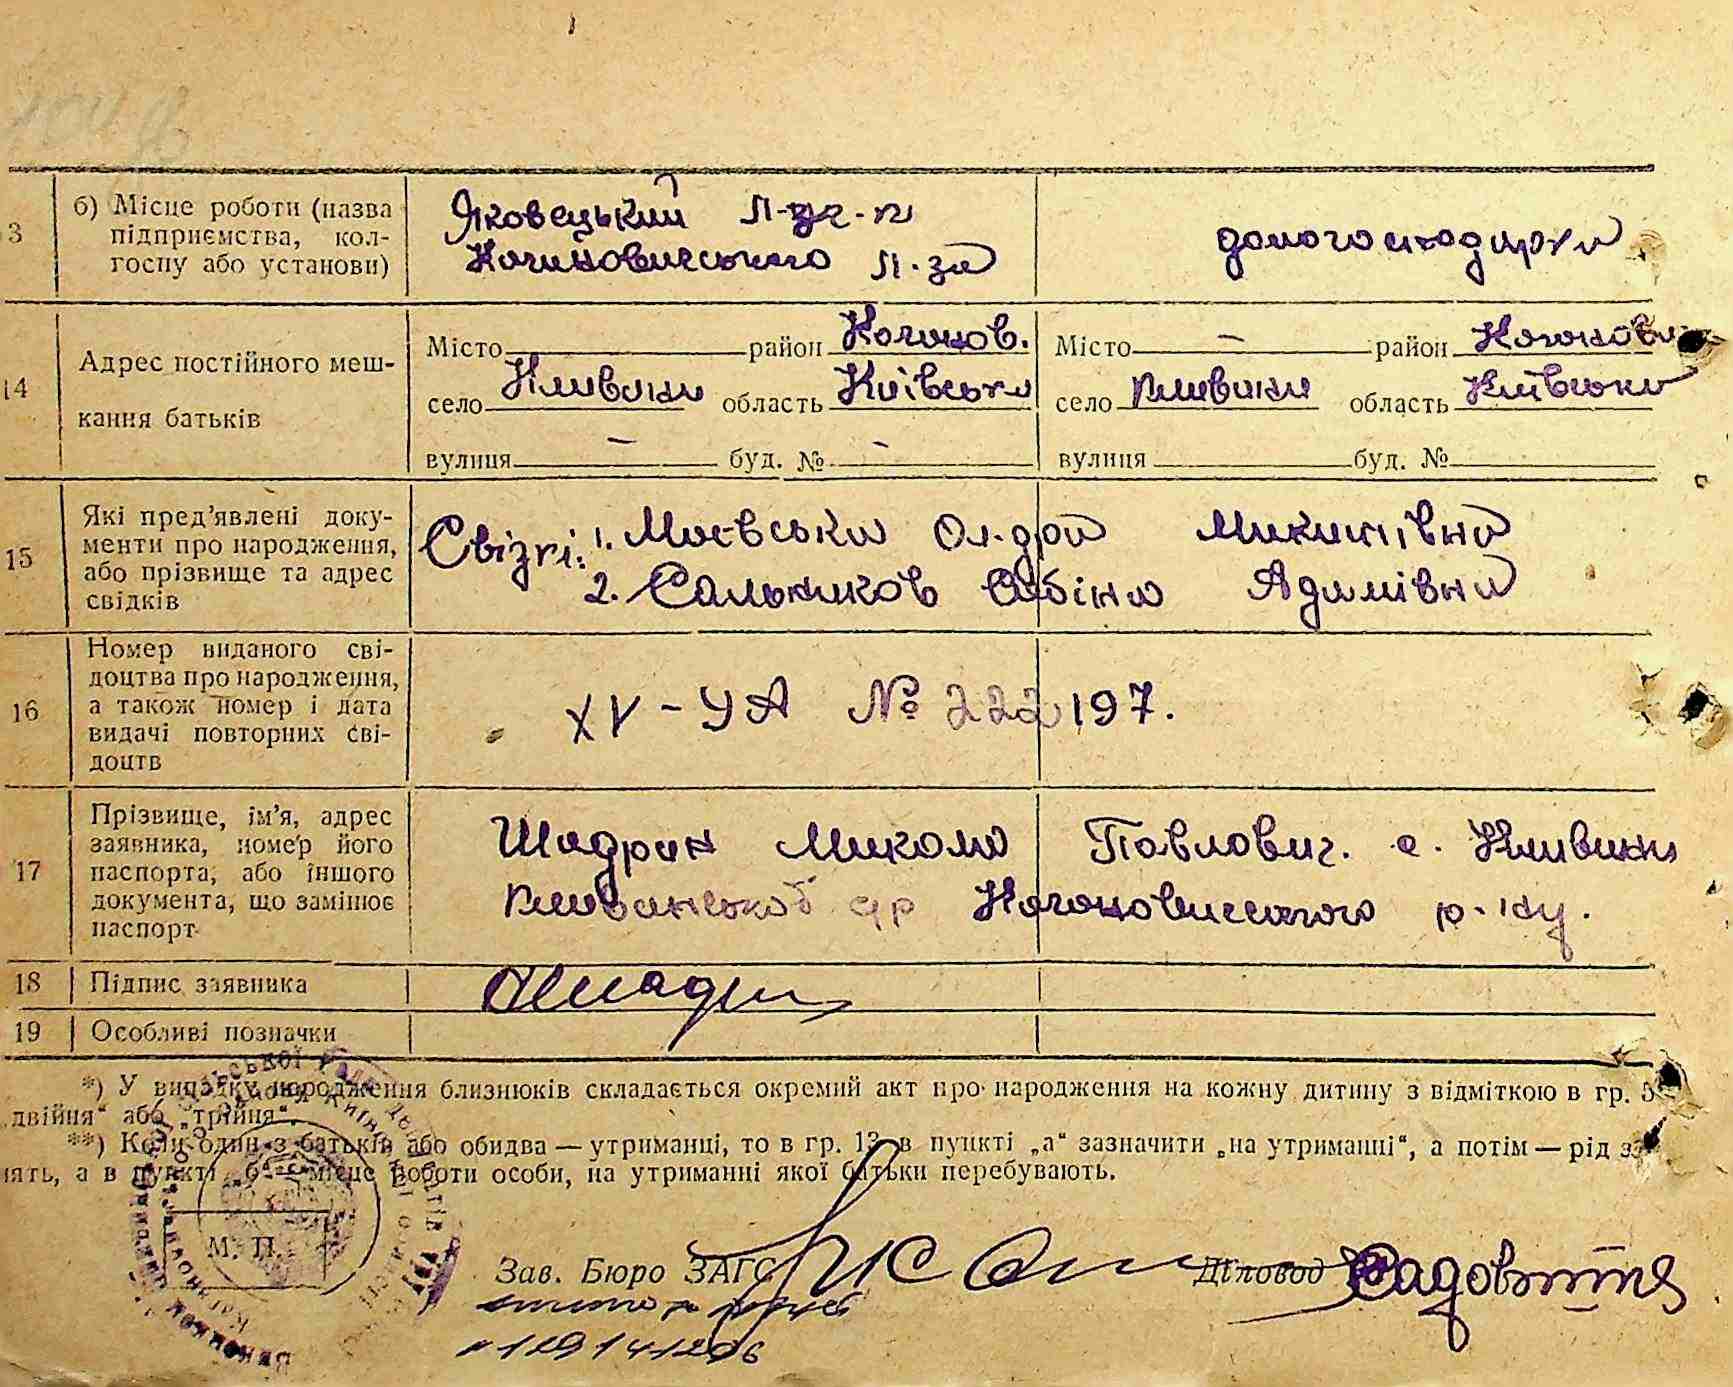 3 б) Місце роботи (назва
підприємства, кол-
госпу або установи)
Яковецький
Кагановичського л-за
домогосподарка
14 Адрес постійного меш-
кання батьків
Місто район Каганов.
село Кливини область Київська
вулиця – буд. № –
Місто – район
село Кливини область Київська
вулиця буд. №
15 Які пред’явлені доку-
менти про народження,
або прізвище та адрес
свідків
Свідкі: 1. Маєвська Микитівна
2. Сальников Сабіна Адамівна
16 Номер виданого сві-
доцтва про народження,
а також номер і дата
видачі повторних сві-
доцтв
XV-УА № 222197.
17 Прізвище, ім’я, адрес
заявника, номер його
паспорта, або іншого
документа, що замінює
паспорт
Шадрин Микола Павлович. с. Кливини
Кагановичського р-ну.
18 Підпис заявника
19 Особливі позначки
*) У випадку народження близнюків складається окремий акт про народження на кожну дитину з відміткою в гр. 5
„двійня“ або „трійня“.
**) Коли один з батьків або обидва — утриманці, то в гр. 13 в пункті „а“ зазначити „на утриманні“, а потім — рід за-
нять, а в пункті „б“ — місце роботи особи, на утриманні якої батьки перебувають.
М. П.
Зав. Бюро ЗАГС
Діловод